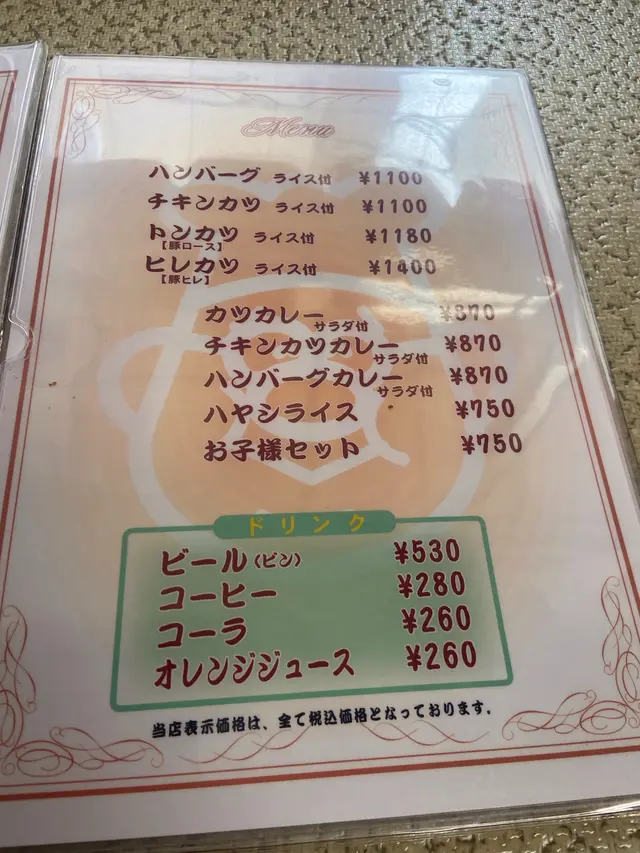 Menu
ハンバーグ ライス付 ¥1100
チキンカツ ライス付 ¥1100
トンカツ ライス付 ¥1180
【豚ロース】
ヒレカツ ライス付 ¥1400
【豚ヒレ】
カツカレー ¥870
サラダ付
チキンカツカレー ¥870
サラダ付
ハンバーグカレー ¥870
サラダ付
ハヤシライス ¥750
お子様セット ¥750
ドリンク
ビール(ビン) ¥530
コーヒー ¥280
コーラ ¥260
オレンジジュース ¥260
当店表示価格は、全て税込価格となっております.